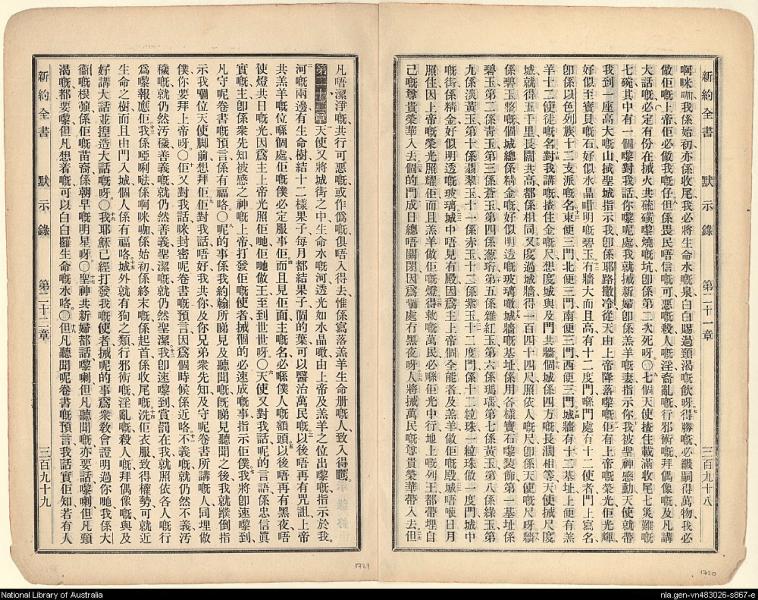 新約全書 默示錄 第二十一章 三百九十八
啊咪咖我係始初亦係收尾我必將生命水嘅泉白白賜過頸渴嘅飲呀得勝嘅必繼嗣得萬物我必
做佢嘅上帝佢必做我嘅仔但係畏民唔信嘅可惡嘅殺人嘅淫亂嘅行邪術嘅拜偶像嘅及凡講
大話嘅必定有份在搣火共硫磺嚟燒嘅坑卽係第二次死呀○七個天使揸住載滿收尾七災難嘅
七碗其中有一個嚟對我話你嚟呢處我就搣新婦卽係羔羊嘅妻指示你我被聖神感動天使就帶
我到一座高大嘅山搣聖城指示我卽係耶路撒冷從天由上帝降落嚟佢有上帝嘅榮光佢光輝
好似至寶貝嘅石好似水晶咁明嘅碧玉有牆大而且高有十二度門喺門處有十二使者門上寫名
卽係以色列族十二支派嘅名東便三門北便三門南便三門西便三門城牆有十二基址上便有羔
羊十二使徒嘅名對我講嘅揸住金嘅尺想度城與及門共牆個城係四方嘅長濶相等天使搣尺度
城就得五千里長闊共高都係相同又度過城牆得一百四十四尺照依人嘅尺卽係天使嘅尺呀牆
係碧玉整嘅個城總係精金嘅好似明透嘅玻璃噉城牆嘅基址係用各樣寶石嚟裝飾第一基址係
城嘅街係精金好似明透嘅玻璃城中唔見有殿因爲主上帝個全能者及羔羊做佢嘅殿城唔使日月
照住因上帝嘅榮光照耀佢而且羔羊做佢嘅燈得救嘅萬民必喺佢光中行地上嘅列王都帶埋自
己嘅尊貴榮華入去個的門成日總唔關閉因爲個處冇黑夜呀人將搣萬民嘅尊貴榮華帶入去但
凡唔潔淨嘅共行可惡嘅或作僞嘅俱唔入得去惟係寫落羔羊生命册嘅人致入得嘅
第二十二章天使又將城街之中生命水嘅河透光如水晶噉由上帝及羔羊之位出嚟嘅指示於我
河嘅兩邊有生命樹結十二樣果子每月都結果子個的葉可以醫治萬民嘅以後唔再有咒詛上帝
共羔羊嘅位喺個處佢嘅僕必定服事佢而且見佢面主嘅名必喺僕人嘅額頭以後唔再有黑夜唔
使燈共日嘅光因爲主上帝光照佢哋佢哋做王至到世世呀○天使又對我話呢的言語係忠信眞
實嘅主卽係衆先知被感之神嘅上帝打發佢嘅使者搣個的必速成嘅事指示佢僕我將卽速嚟到
凡守呢卷書嘅預言係有福咯○呢的事係我約翰所睇見及聽聞嘅旣睇見聽聞之後我就蹼倒指
示我個位天使脚前想拜佢佢對我話唔好我共你及你兄弟衆先知及守呢卷書所講嘅人同埋做
僕你要拜上帝呀○佢又對我話咪封密呢卷書嘅預言因爲個時候係近咯不義嘅就仍然不義污
穢嘅就仍然汚穢善義嘅就仍然善義聖潔嘅就仍然聖潔我卽速嚟到賞罰在我就照依各人嘅行
爲嚟報應佢我係啞唎啡係啊咪咖係始初係終末嘅係起首係收尾嘅洗佢衣服致得權勢可就近
生命之樹而且由門入城個人係有福咯城外就有狗之類行邪術嘅淫亂嘅殺人嘅拜偶像嘅與及
好講大話並捏造大話嘅呀○我耶穌已經打發我嘅使者搣呢的事爲衆敎會證明過你哋我係大
衞嘅根嘅係佢嘅苗裔係朝早嘅明星呀○聖神共新婦都話嚟喇但凡聽聞嘅亦要話嚟喇但凡頸
渴嘅都要嚟但凡想着嘅可以白白羅生命嘅水咯○但凡聽聞呢卷書嘅預言我話實佢知若有人
新約全書 默示錄 第二十二章 三百九十九
1721
1720
National Library of Australia
nla.gen-vn483026-s867-e